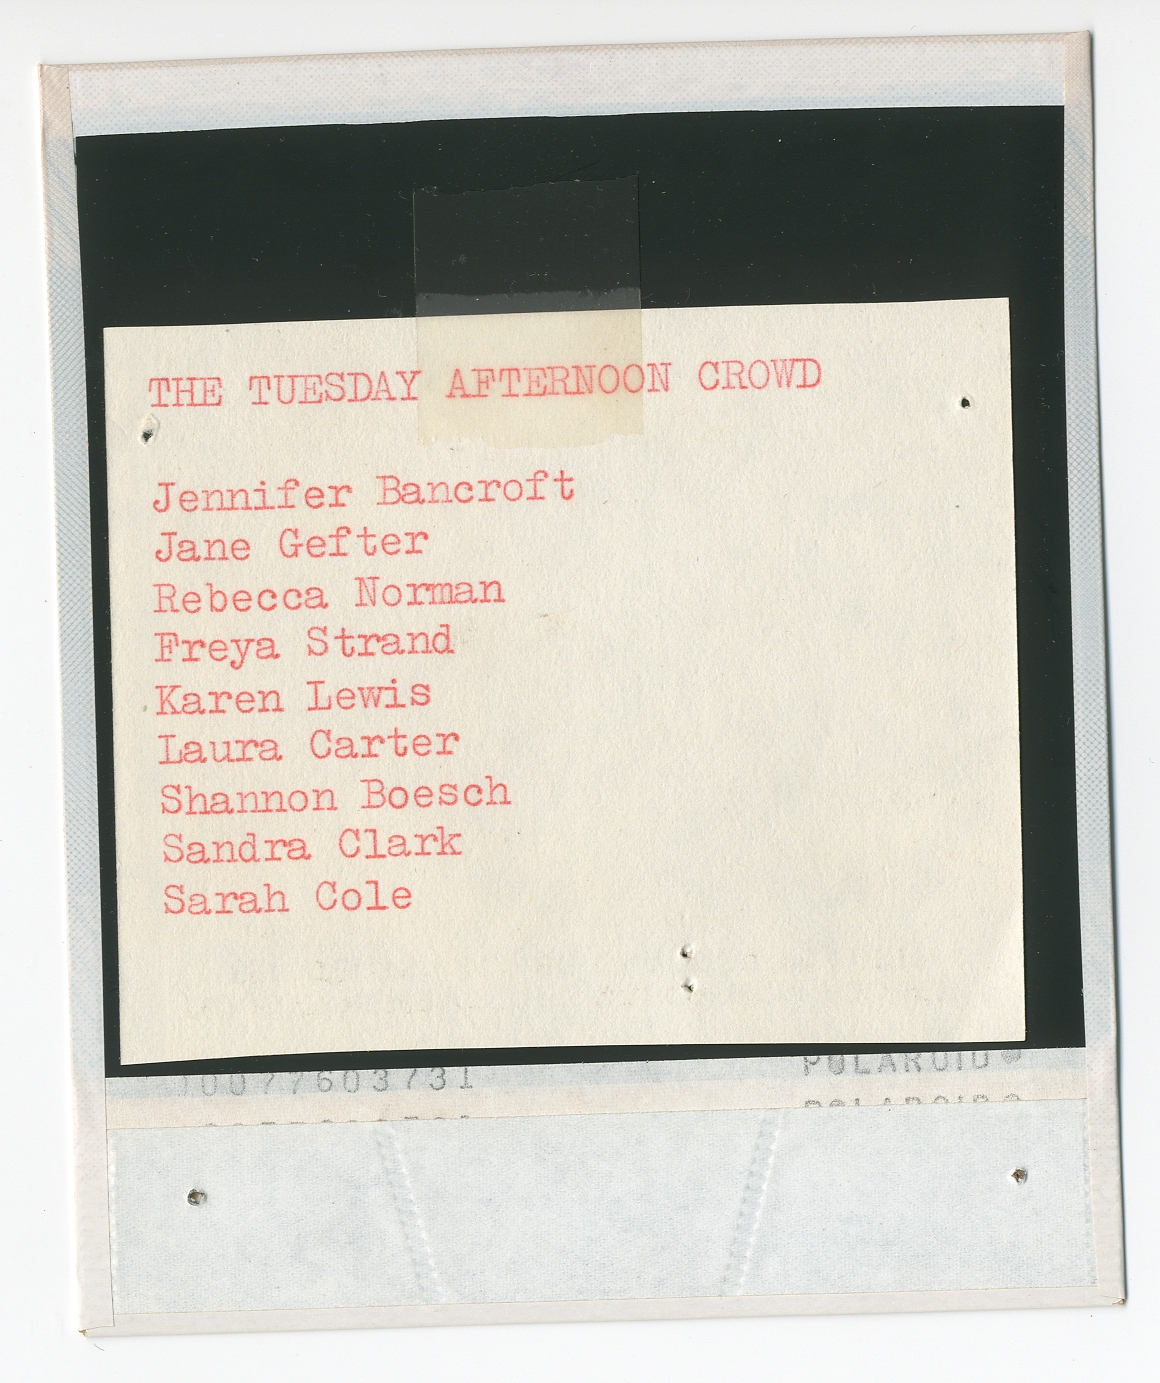 THE TUESDAY AFTERNOON CROWD
Jennifer Bancroft
Jane Gefter
Rebecca Norman
Freya Strand
Karen Lewis
Laura Carter
Shannon Boesch
Sandra Clark
Sarah Cole
POLAROID®
POLAROID®